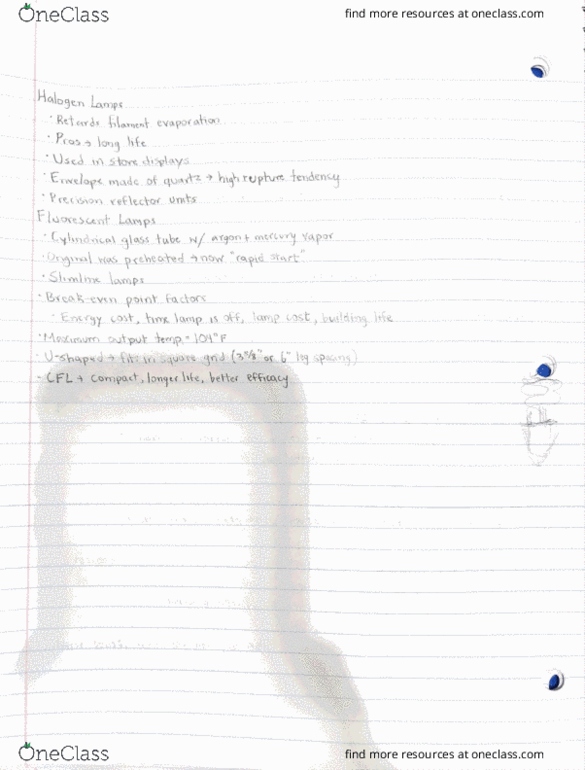 OneClass
find more resources at oneclass.com
Halogen Lamps
· Retards filament evaporation
· Pros → long life
· Used in store displays
· Envelope made of quartz → high rupture tendency
· Precision reflector units
Fluorescent Lamps
· Cylindrical glass tube w/ argon + mercury vapor
· Original was preheated → now "rapid start"
· Slimline lamps
· Break-even point factors
· Energy cost, time lamp is off, lamp cost, building life
· Maximum output temp. = 104°F
· U-shaped → fit in square grid (3 5/8" or 6" leg spacing)
· CFL → compact, longer life, better efficacy
OneClass
find more resources at oneclass.com